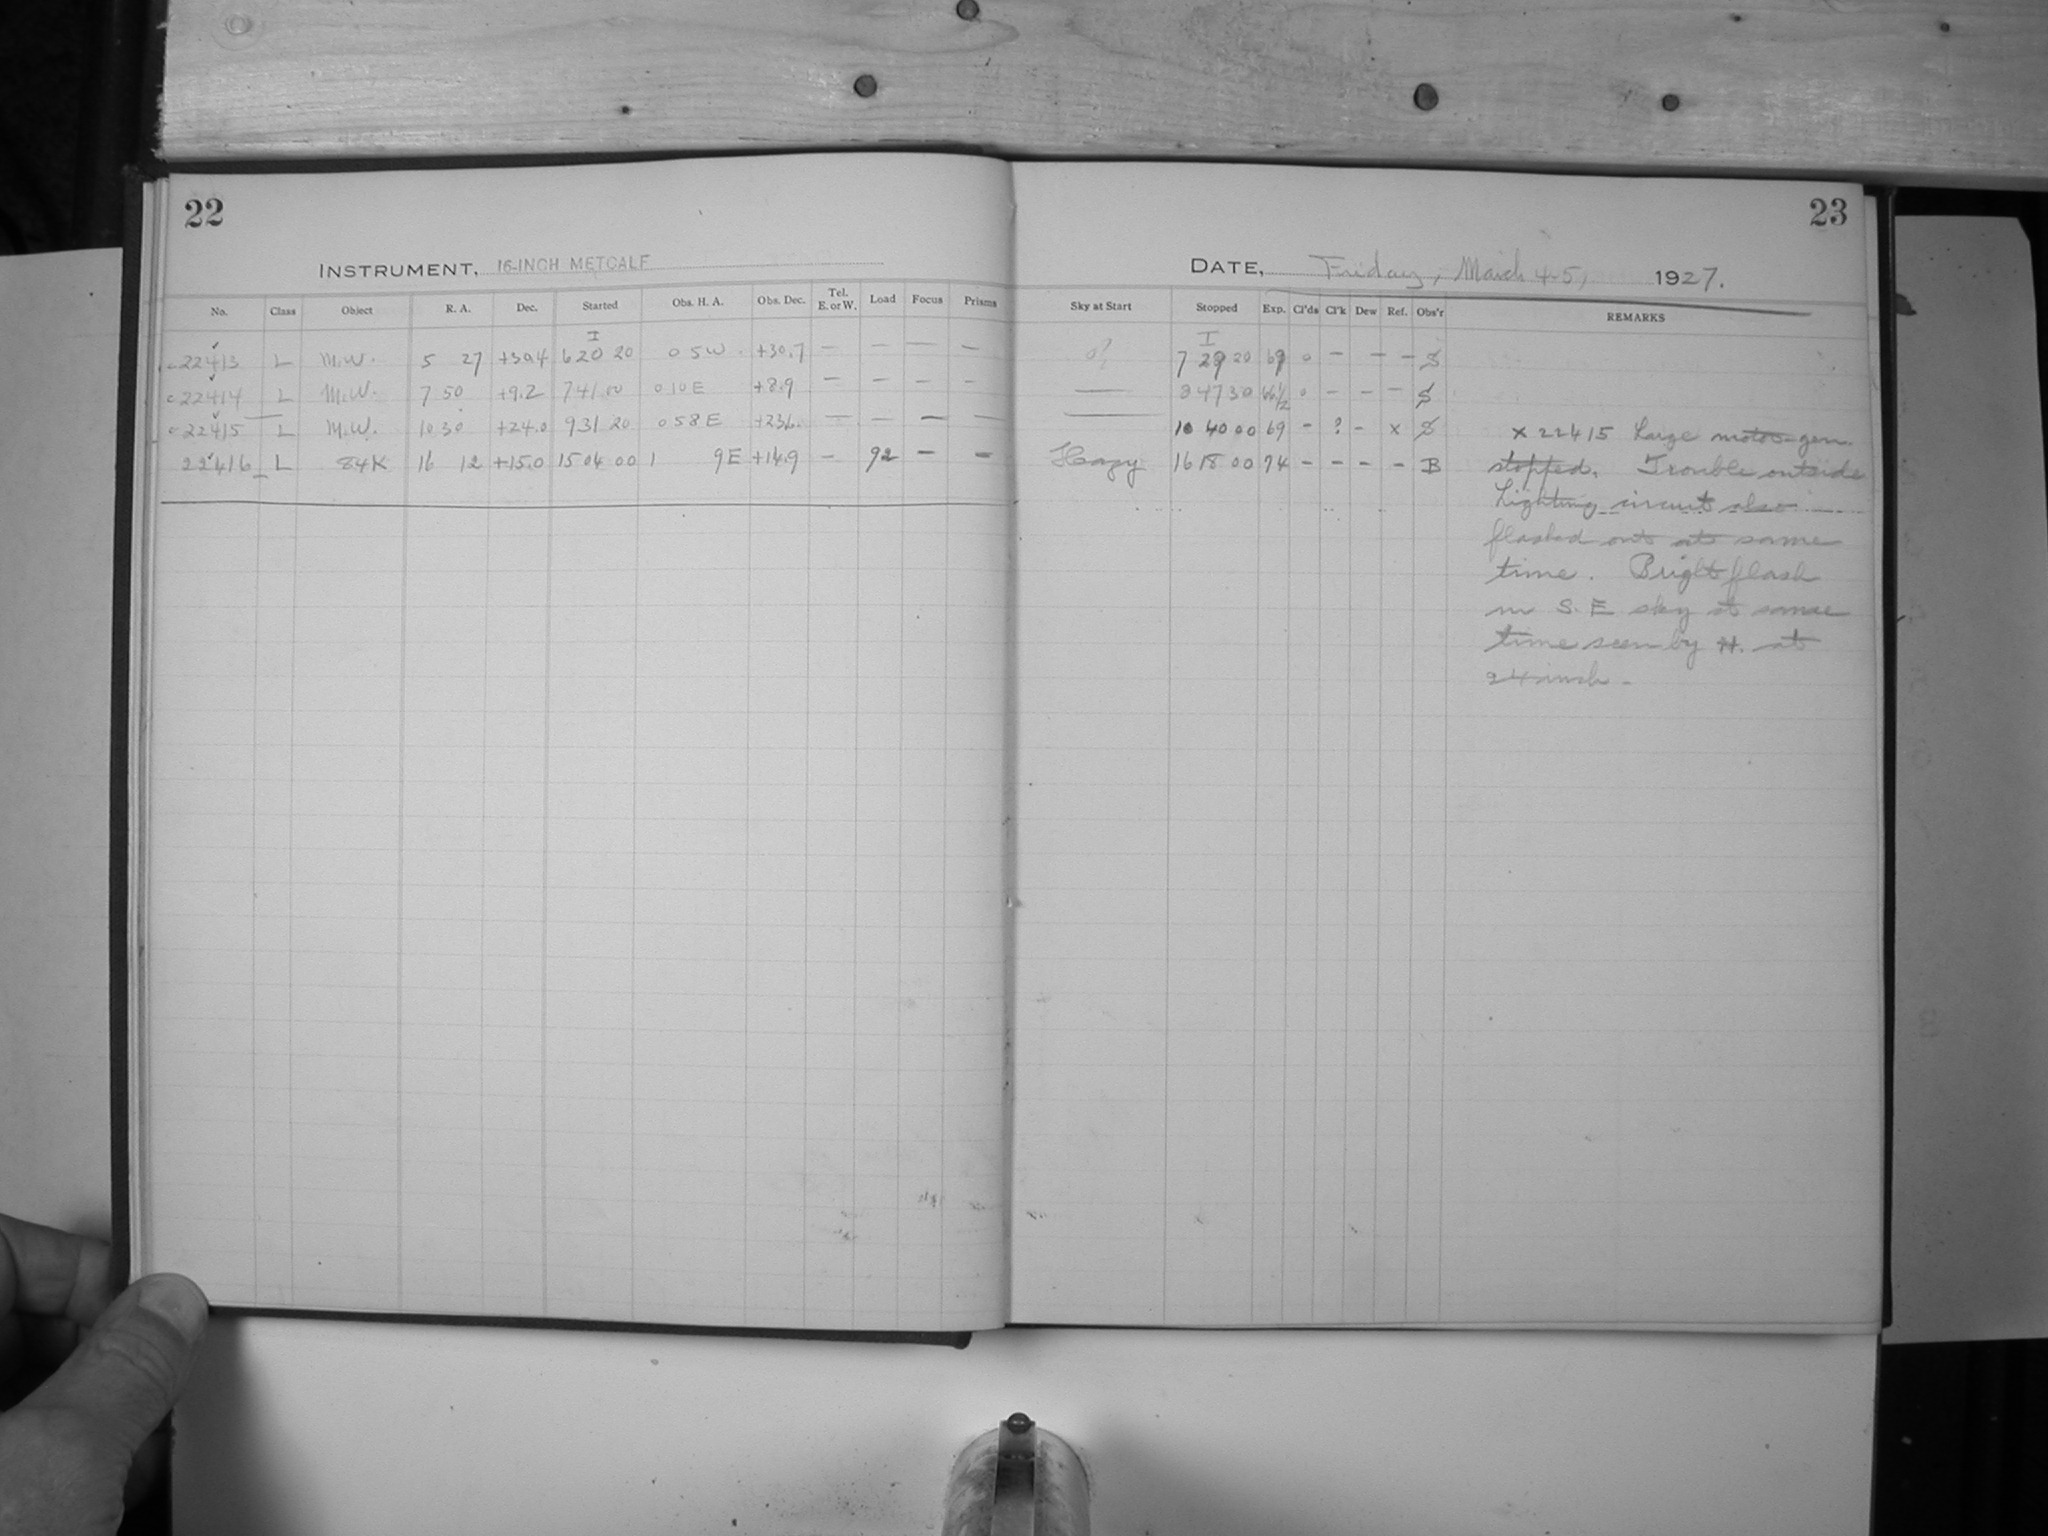 22
INSTRUMENT, 16-INCH METCALF
No. Class Object R. A. Dec. Started Obs. H. A. Obs. Dec. Tel. E. or W. Load Focus Prisms
I
22413 L M.W. 5 27 +30.4 6 20 20 0 5 W +30.7 — — — —
22414 L M.W. 7 50 +9.2 7 41 00 0 10 E +8.9 — — — —
22415 L M.W. 10 30 +24.0 9 31 20 0 58 E +23.6 — — — —
22416 L 84K 16 12 +15.0 15 04 00 1 9E +14.9 — 92 — —
23
DATE, Friday, March 4-5, 1927.
Sky at Start Stopped Exp. Cl'ds Cl'k Dew Ref. Obs'r REMARKS
I
7 29 20 69 0 — — — S
— 8 47 30 66½ 0 — — — S
— 10 40 00 69 — ? — x S
Hazy 16 18 00 74 — — — — B
x 22415 Large motor-gen.
stopped. Trouble outside
Lighting circuit also
flashed out at same
time. Bright flash
in S.E sky at same
time seen by H. at
24 inch —